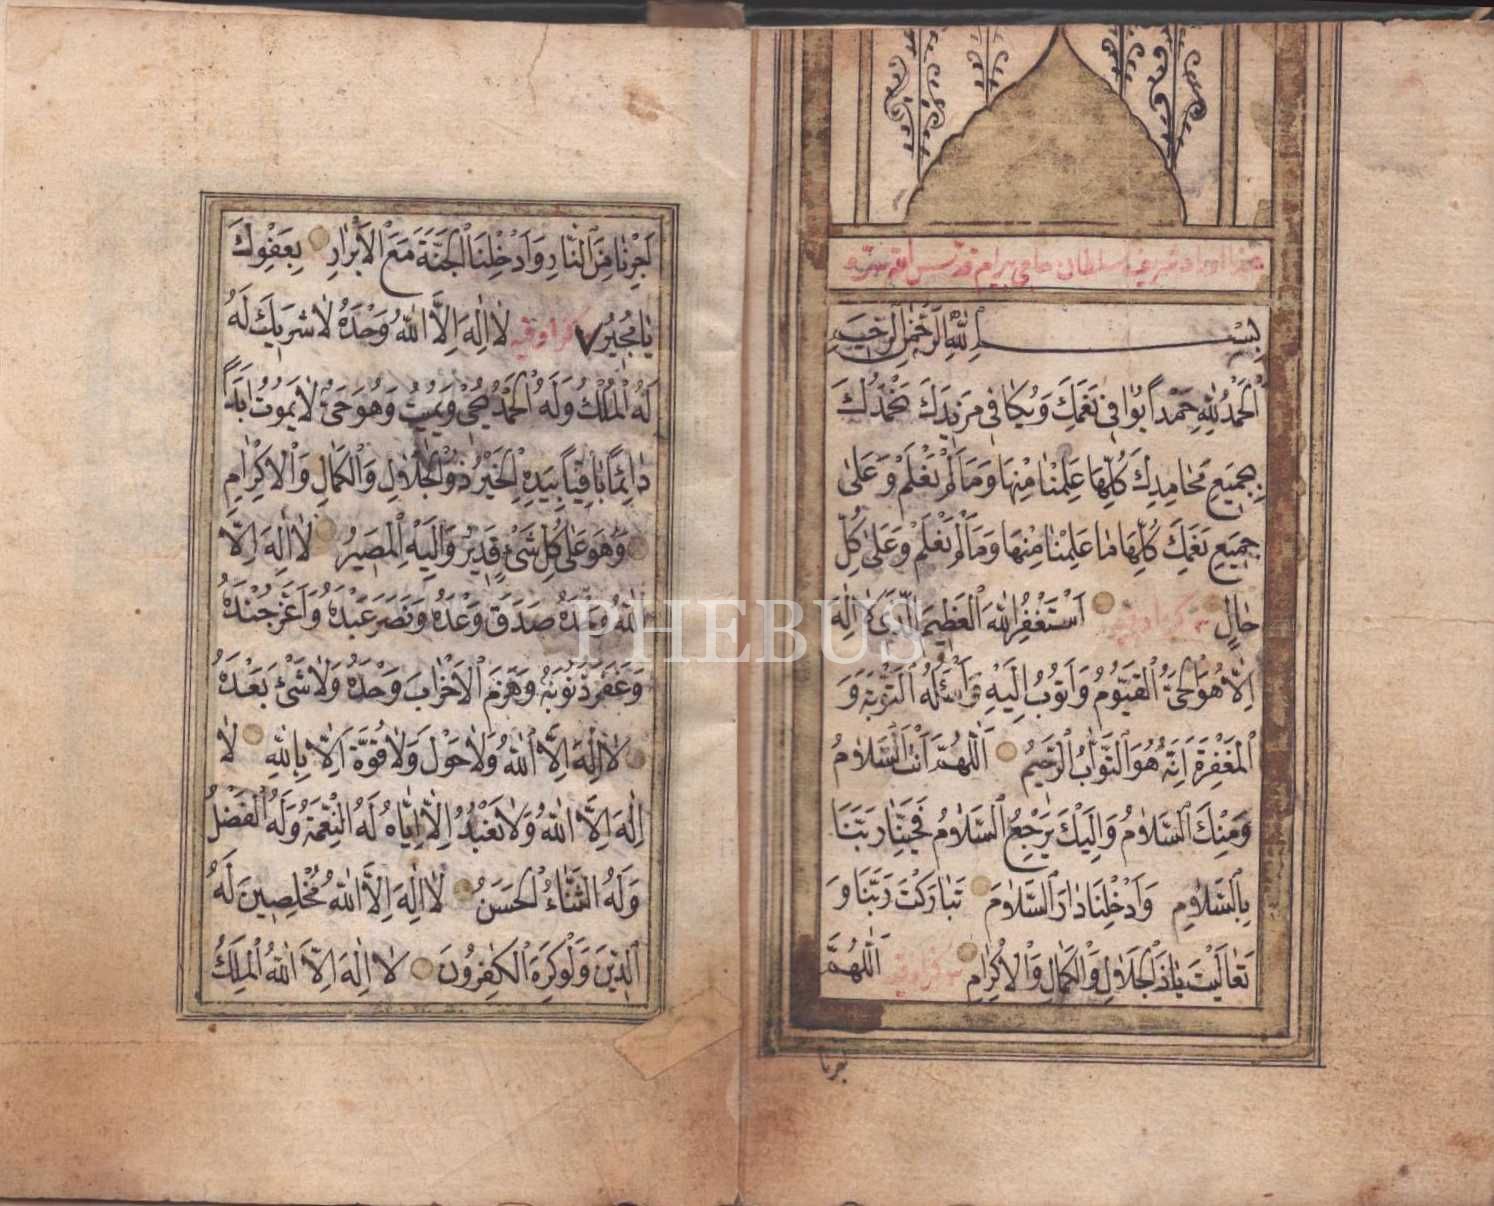 هذا اوراد شريف سلطان حاجى بيرام قدس الله سره
بِسْمِ اللهِ الرَّحْمٰنِ الرَّحِيمِ
اَلْحَمْدُ لِلّٰهِ حَمْداً يُوَافِي نِعَمَكَ وَيُكَافِي مَزِيدَكَ نَحْمَدُكَ
بِجَمِيعِ مَحَامِدِكَ كُلِّهَا مَا عَلِمْنَا مِنْهَا وَمَا لَمْ نَعْلَمْ وَعَلَى
جَمِيعِ نِعَمِكَ كُلِّهَا مَا عَلِمْنَا مِنْهَا وَمَا لَمْ نَعْلَمْ وَعَلَى كُلِّ
حَالٍ اَسْتَغْفِرُ اللهَ الْعَظِيمَ الَّذِي لَا اِلٰهَ
اِلَّا هُوَ الْحَيَّ الْقَيُّومُ وَاَتُوبُ اِلَيْهِ وَاَسْئَلُهُ التَّوْبَةَ وَ
الْمَغْفِرَةَ اِنَّهُ هُوَ التَّوَّابُ الرَّحِيمُ اَللّٰهُمَّ اَنْتَ السَّلَامُ
وَمِنْكَ السَّلَامُ وَاِلَيْكَ يَرْجِعُ السَّلَامُ فَحَيِّنَا رَبَّنَا
بِالسَّلَامِ وَاَدْخِلْنَا دَارَ السَّلَامِ تَبَارَكْتَ رَبَّنَا وَ
تَعَالَيْتَ يَا ذَا الْجَلَالِ وَالْكَمَالِ وَالْاِكْرَامِ اَللّٰهُمَّ
اجرنا
اَجِرْنَا مِنَ النَّارِ وَاَدْخِلْنَا الْجَنَّةَ مَعَ الْاَبْرَارِ بِعَفْوِكَ
يَا مُجِيرُ ٧ لَا اِلٰهَ اِلَّا اللهُ وَحْدَهُ لَا شَرِيكَ لَهُ
لَهُ الْمُلْكُ وَلَهُ الْحَمْدُ يُحْيِي وَيُمِيتُ وَهُوَ حَيٌّ لَا يَمُوتُ اَبَداً
دَائِماً بَاقِياً بِيَدِهِ الْخَيْرُ ذُو الْجَلَالِ وَالْكَمَالِ وَالْاِكْرَامِ
وَهُوَ عَلَى كُلِّ شَيْءٍ قَدِيرٌ وَاِلَيْهِ الْمَصِيرُ لَا اِلٰهَ اِلَّا
اللهُ وَحْدَهُ صَدَقَ وَعْدَهُ وَنَصَرَ عَبْدَهُ وَاَعَزَّ جُنْدَهُ
وَغَفَرَ ذُنُوبَهُ وَهَزَمَ الْاَحْزَابَ وَحْدَهُ وَلَا شَيْءَ بَعْدَهُ
لَا اِلٰهَ اِلَّا اللهُ وَلَا حَوْلَ وَلَا قُوَّةَ اِلَّا بِاللهِ لَا
اِلٰهَ اِلَّا اللهُ وَلَا نَعْبُدُ اِلَّا اِيَّاهُ لَهُ النِّعْمَةُ وَلَهُ الْفَضْلُ
وَلَهُ الثَّنَاءُ الْحَسَنُ لَا اِلٰهَ اِلَّا اللهُ مُخْلِصِينَ لَهُ
الدِّينَ وَلَوْ كَرِهَ الْكَافِرُونَ لَا اِلٰهَ اِلَّا اللهُ الْمَلِكُ
PHEBUS